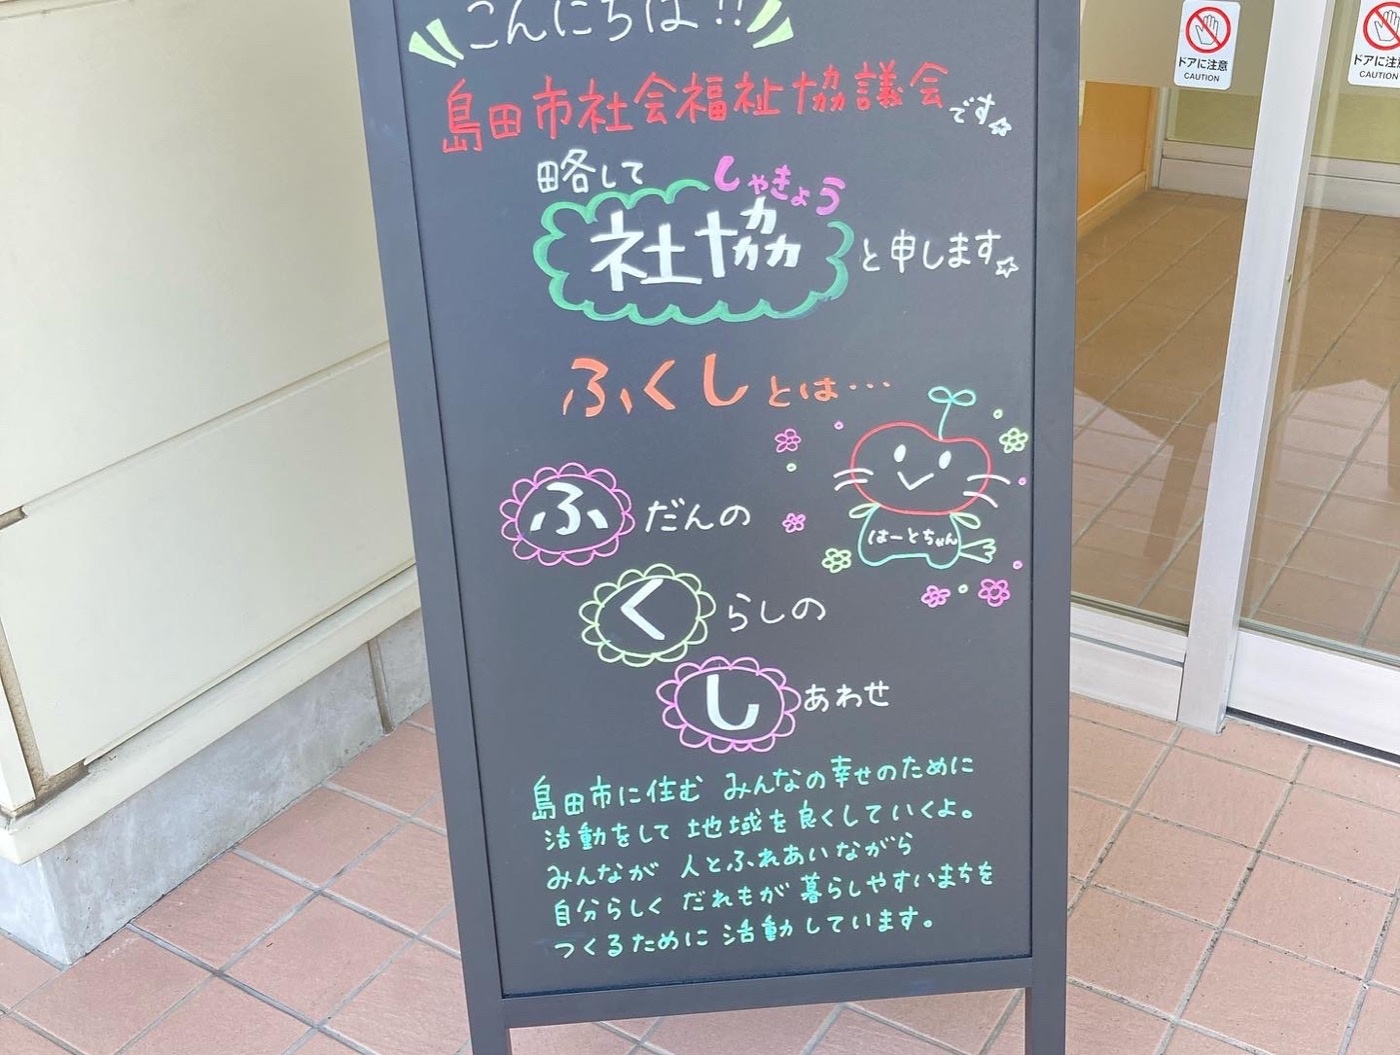 こんにちは!!
島田市社会福祉協議会です☆
略して
しゃきょう
社協と申します☆
ふくしとは…
ふだんの
くらしの
しあわせ
はーとちゃん
島田市に住む みんなの幸せのために
活動をして 地域を良くしていくよ。
みんなが 人とふれあいながら
自分らしく だれもが 暮らしやすいまちを
つくるために 活動しています。
ドアに注意
CAUTION
ドアに注意
CAUTION